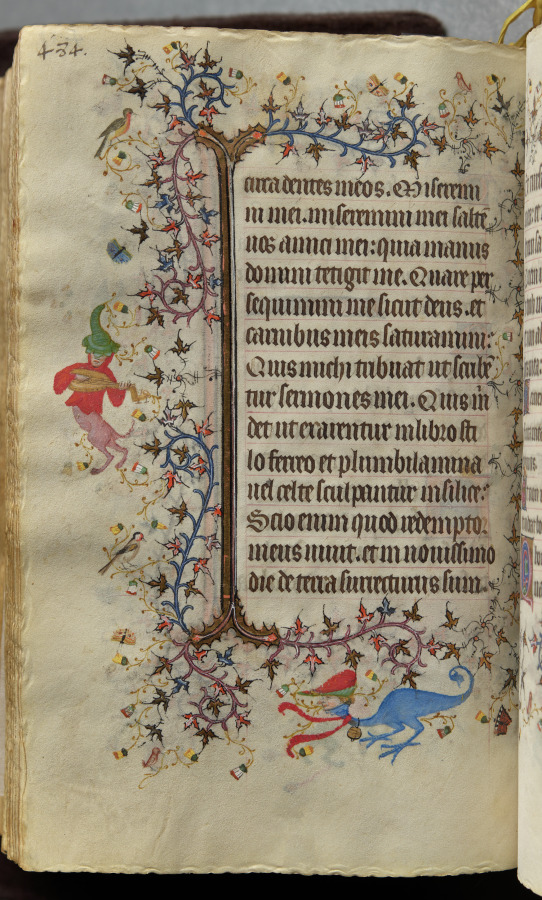 434.
circa dentes meos. Miseremi
ni mei. miseremini mei salte
uos amici mei: quia manus
domini tetigit me. Quare per
sequimini me sicut deus. et
carnibus meis saturamini:
Quis michi tribuat ut scribē
tur sermones mei. Quis m̄
det ut exarentur in libro sti
lo ferreo et plumbi lamina
uel celte sculpantur in silice:
Scio enim quod redemptor
meus uiuit. et in nouissimo
die de terra surrecturus sum.